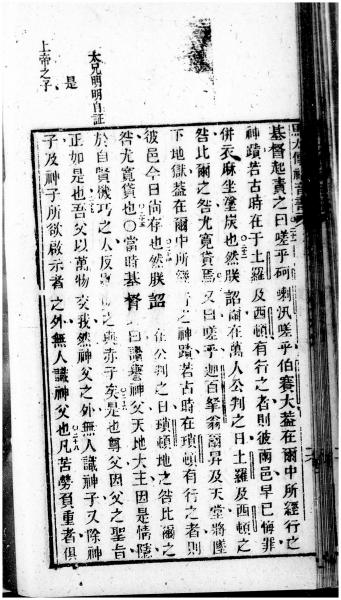 馬太傳福音書
基督起責之曰嗟乎硕喇汛嗟乎伯賽大葢在爾中所經行之
神蹟若古時在于土羅及西頓有行之者則彼兩邑早已悔罪
併衣麻坐塗炭也然朕詔爾在萬人公判之日土羅及西頓之
咎比爾之咎尤寛貸焉又曰嗟乎迦百拏翁爾昇及天堂將墜
下地獄葢在爾中所經行之神蹟若古時在瑣頓有行之者則
彼邑今日尙存也然朕詔在公判之日瑣頓地之咎比爾之
咎尤寛貸也〇當時基督曰讚譽神父天地大主因是情隱
於自賢機巧之人反之與赤子矣是也尊父因父之聖旨
正如是也吾父以萬物交我然神父之外無人識神子又除神
子及神子所欲啟示者之外無人識神父也凡苦勞負重者俱
太兄明明自証
是
上帝之子